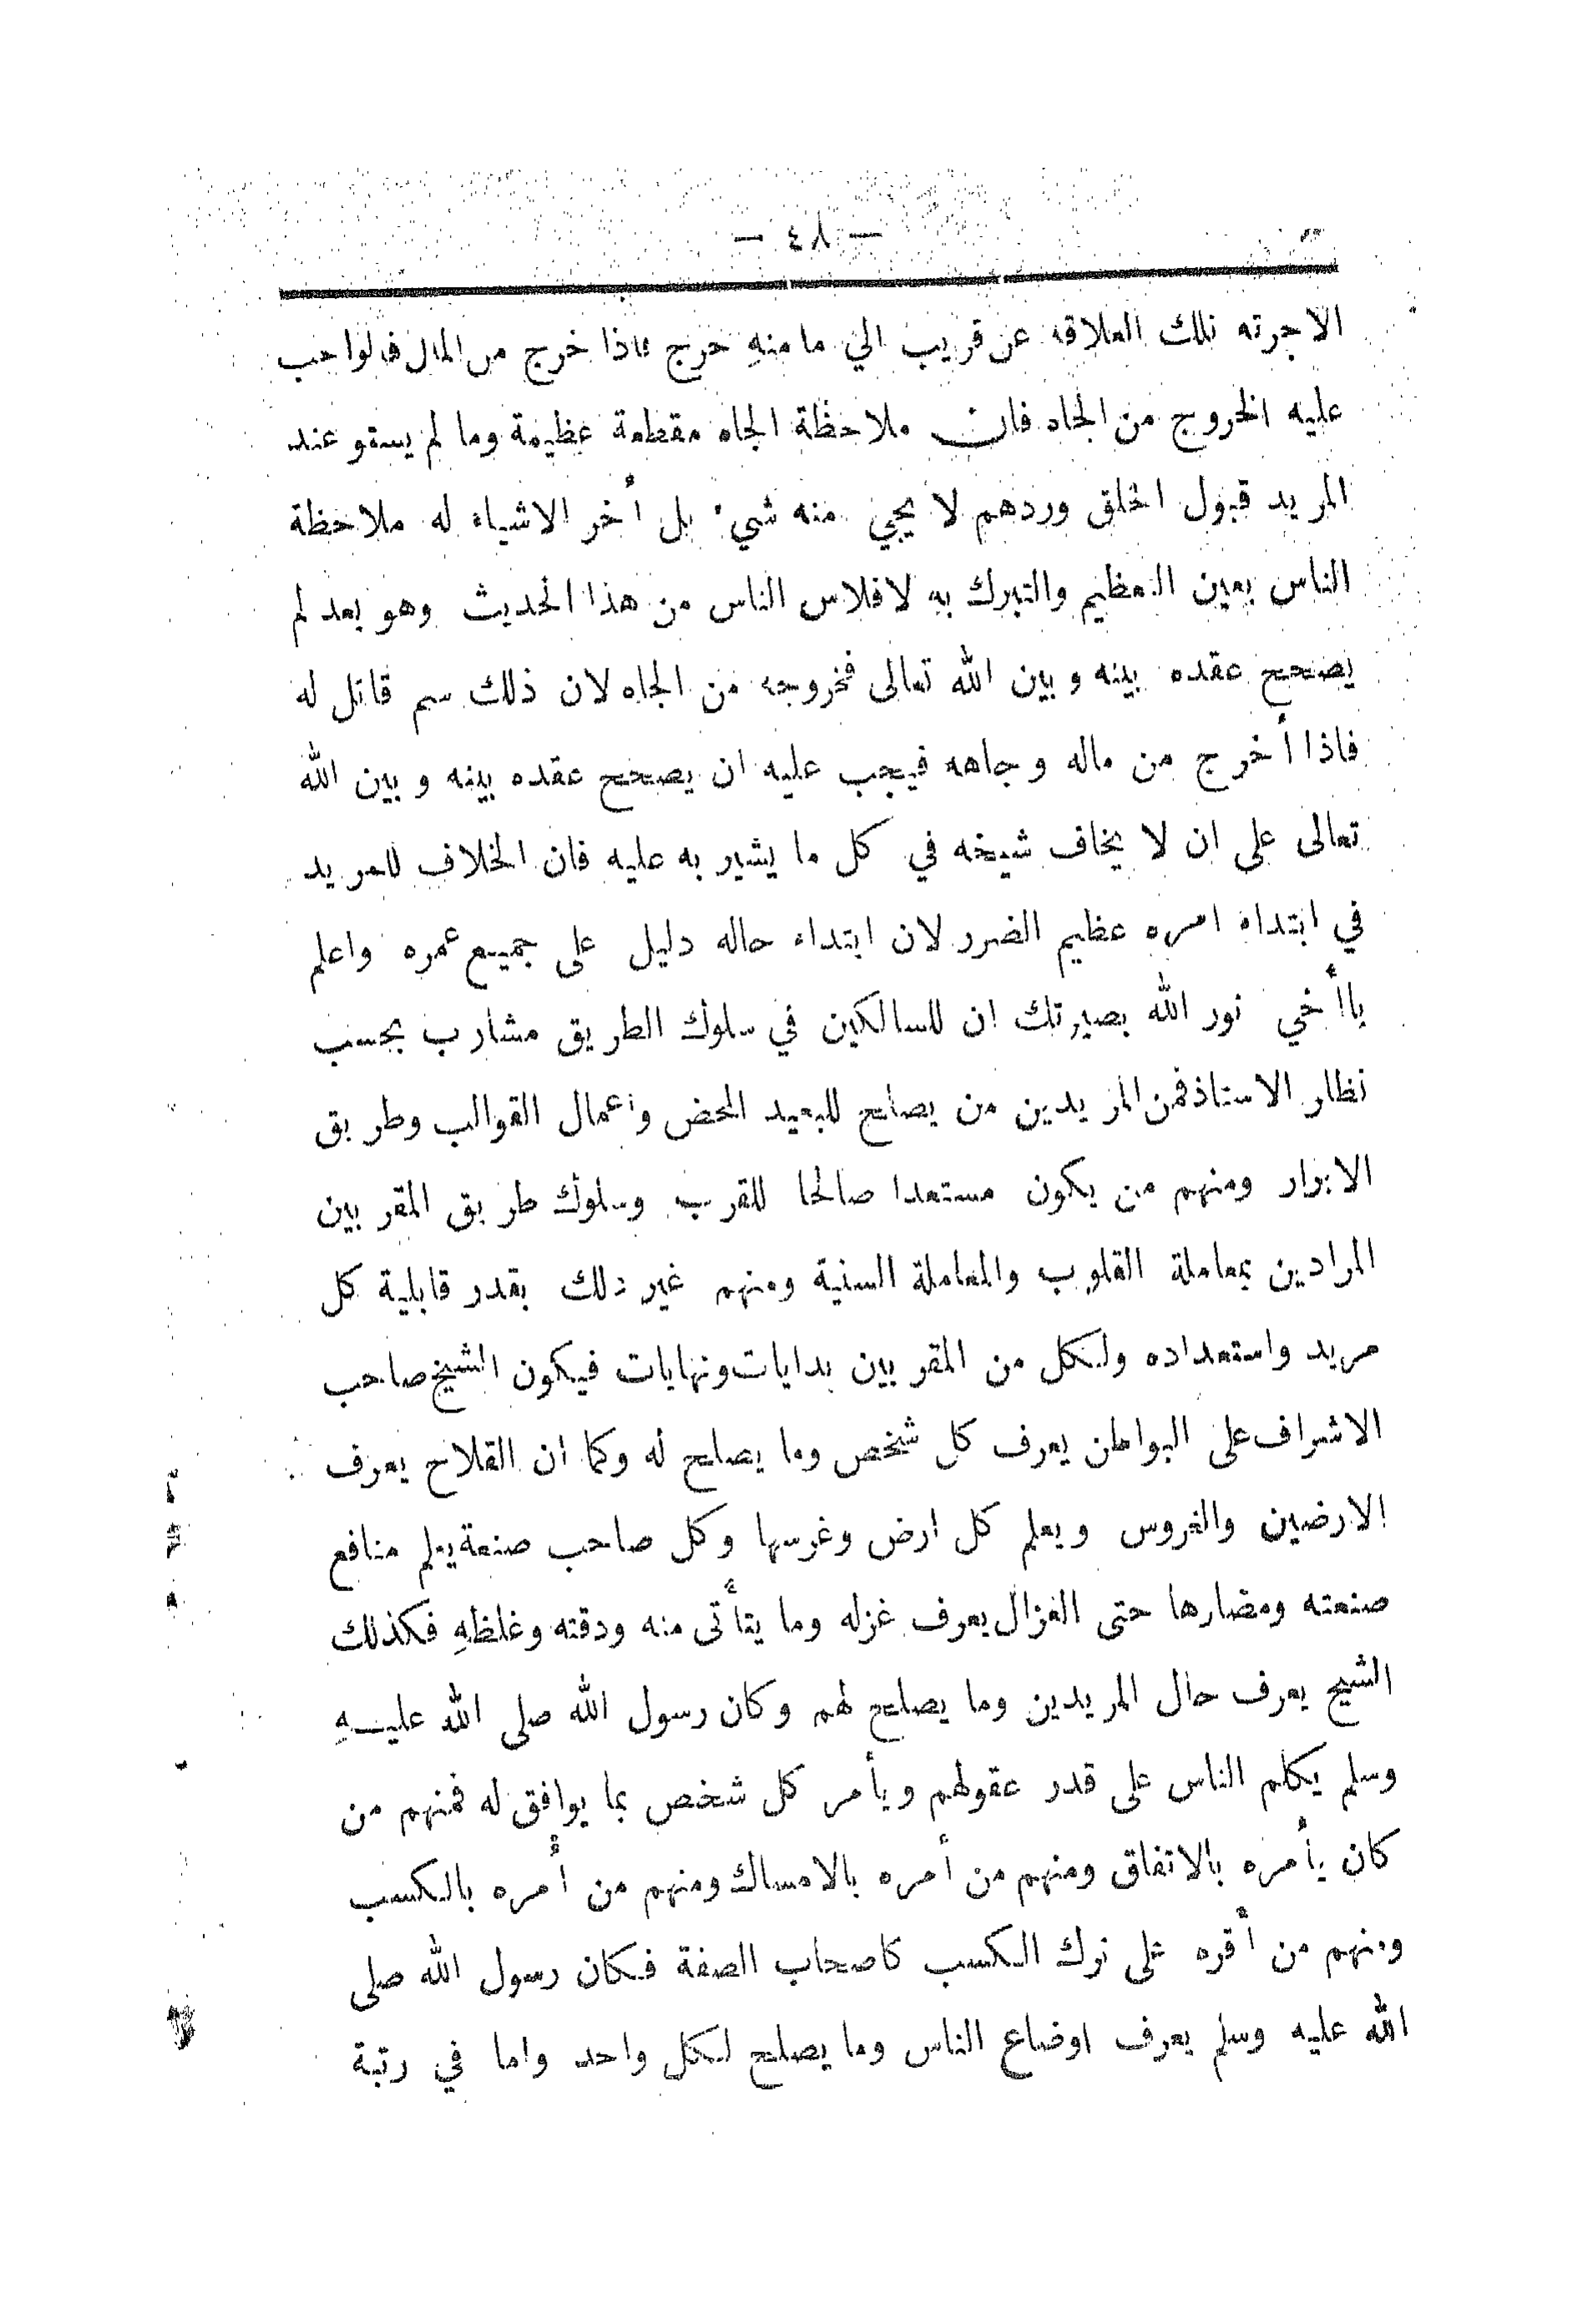 — ٤٨ —
الا جرته تلك العلاقه عن قريب الي ما منهِ خرج فاذا خرج من المال فالواجب
عليه الخروج من الجاه فان ملاحظة الجاه مقطعة عظيمة وما لم يستو عند
المريد قبول الخلق وردهم لا يجي منه شيء بل أخر الاشياء له ملاحظة
الناس بعين التعظيم والتبرك به لافلاس الناس من هذا الحديث وهو بعد لم
يصحح عقده بينه وبين الله تعالى فخروجه من الجاه لان ذلك سم قاتل له
فاذا أخرج من ماله وجاهه فيجب عليه ان يصحح عقده بينه وبين الله
تعالى على ان لا يخاف شيخه في كل ما يشير به عليه فان الخلاف للمريد
في ابتداء امره عظيم الضرر لان ابتداء حاله دليل على جميع عمره واعلم
ياأخي نور الله بصيرتك ان للسالكين في سلوك الطريق مشارب بحسب
نظار الاستاذ فمن المريدين من يصلح للبعيد المحض واعمال القوالب وطريق
الابرار ومنهم من يكون مستعدا صالحا للقرب وسلوك طريق المقربين
المرادين بمعاملة القلوب والمعاملة السنية ومنهم غير ذلك بقدر قابلية كل
مريد واستعداده ولكل من المقربين بدايات ونهايات فيكون الشيخ صاحب
الاشراف على البواطن يعرف كل شخص وما يصلح له وكما ان الفلاح يعرف
الارضين والغروس ويعلم كل ارض وغرسها وكل صاحب صنعة يعلم منافع
صنعته ومضارها حتى الغزال يعرف غزله وما يتأتى منه ودقته وغلظهِ فكذلك
الشيخ يعرف حال المريدين وما يصلح لهم وكان رسول الله صلى الله عليهِ
وسلم يكلم الناس على قدر عقولهم ويأمر كل شخص بما يوافق له فمنهم من
كان يأمره بالاتفاق ومنهم من أمره بالامساك ومنهم من أمره بالكسب
ومنهم من أقره على ترك الكسب كاصحاب الصفة فكان رسول الله صلى
الله عليه وسلم يعرف اوضاع الناس وما يصلح لكل واحد واما في رتبة